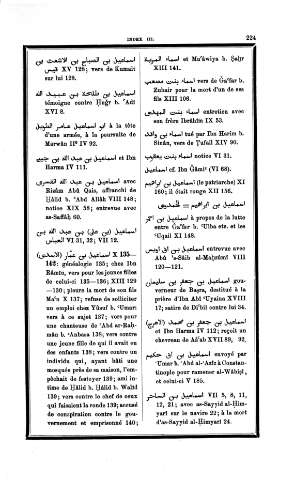 INDEX III.
224
اسماعيل بن الصباح بن الاشعث بن
قيس XV 128; vers de Kumait
sur lui 129.
اسماعيل بن طلحة بن عبيد الله
témoigne contre Ḥuǵr b. ʿAdî
XVI 8.
اسماعيل بن عامر à la tête
d'une armée, à la poursuite de
Marwân II° IV 92.
اسماعيل بن عبد الله بن et Ibn
Harma IV 111.
اسماعيل بن عبد الله القسرى avec
Rizâm Abû Qais, affranchi de
Ḫâlid b. ʿAbd Allâh VIII 148;
notice XIX 58; entrevue avec
as-Saffâḥ 60.
اسماعيل (بن على) بن عبد الله بن
العباس VI 31, 32; VII 12.
اسماعيل بن عمار (الاسدى) X 135—
142: généalogie 135; chez Ibn
Râmîn, vers pour les jeunes filles
de celui-ci 135—136; XIII 129
—130; pleure la mort de son fils
Maʿn X 137; refuse de solliciter
un emploi chez Yûsuf b. ʿUmar:
vers à ce sujet 137; vers pour
une chanteuse de ʿAbd ar-Raḥ-
mân b. 138; vers contre
une jeune fille de qui il avait eu
des enfants 138; vers contre un
individu qui, ayant bâti une
mosquée près de sa maison, l'em-
pêchait de festoyer 139; ami in-
time de Ḫâlid b. Ḫâlid b. Walîd
139; vers contre le chef de ceux
qui faisaient la ronde 139; accusé
de conspiration contre le gou-
vernement et emprisonné 140;
اسماء المرية et Muʿâwiya b. Ṣaḫr
XIII 141.
اسماء بنت مصعب vers de Ǵaʿfar b.
Zubair pour la mort d'un de ses
fils XIII 106.
اسماء بنت المهدى entretien avec
son frère Ibrâhîm IX 53.
اسماء بن واقد tué par Ibn Harim b.
Sinân, vers de Ṭufail XIV 90.
اسماء بنت يعقوب notice VI 31.
اسماعيل cf. Ibn Ǵâmiʿ (VI 68).
اسماعيل بن ابراهيم (le patriarche) XI
160; il était rouge XII 156.
اسماعيل بن ابراهيم =
اسماعيل بن à propos de la lutte
entre Ǵaʿfar b. ʿUlba etc. et les
ʿUqail XI 148.
اسماعيل بن ابى اويس entrevue avec
Abû ʾs-Sâib al-Maḫzûmî VIII
120—121.
اسماعيل بن جعفر بن سليمان gou-
verneur de Baṣra, destitué à la
prière d'Ibn Abî ʿUyaina XVIII
17; satire de Diʿbil contre lui 34.
اسماعيل بن جعفر بن محمد (الاعرج)
et Ibn Harma IV 112; reçoit un
chevreau de Aǧʿab XVII 89, 92,
اسماعيل بن ابى حكيم envoyé par
ʿUmar b. ʿAbd al-ʿAzîz à Constan-
tinople pour ramener al-Wâbiṣî,
et celui-ci V 185.
اسماعيل بن الساحر VII 5, 8, 11,
12, 21; avec as-Sayyid al-Ḥim-
yarî sur le navire 22; à la mort
d'as-Sayyid al-Ḥimyarî 24.